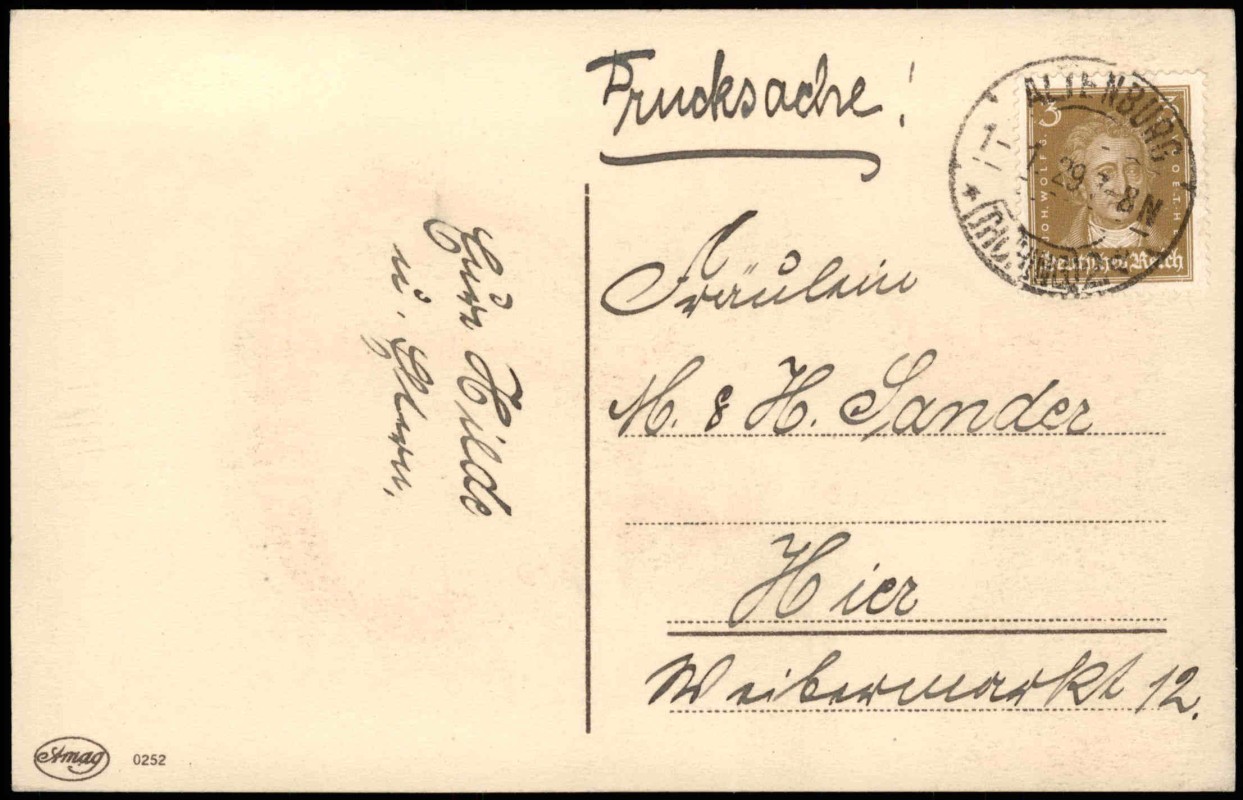 Drucksache!
ALTENBURG
1.1.29. 7-8N
3
JOH. WOLFG.
GOETHE
Deutsches Reich
Fräulein
M. & H. Sander
Hier
Weibermarkt 12.
Eure Hilde
u. Eltern.
Amag
0252